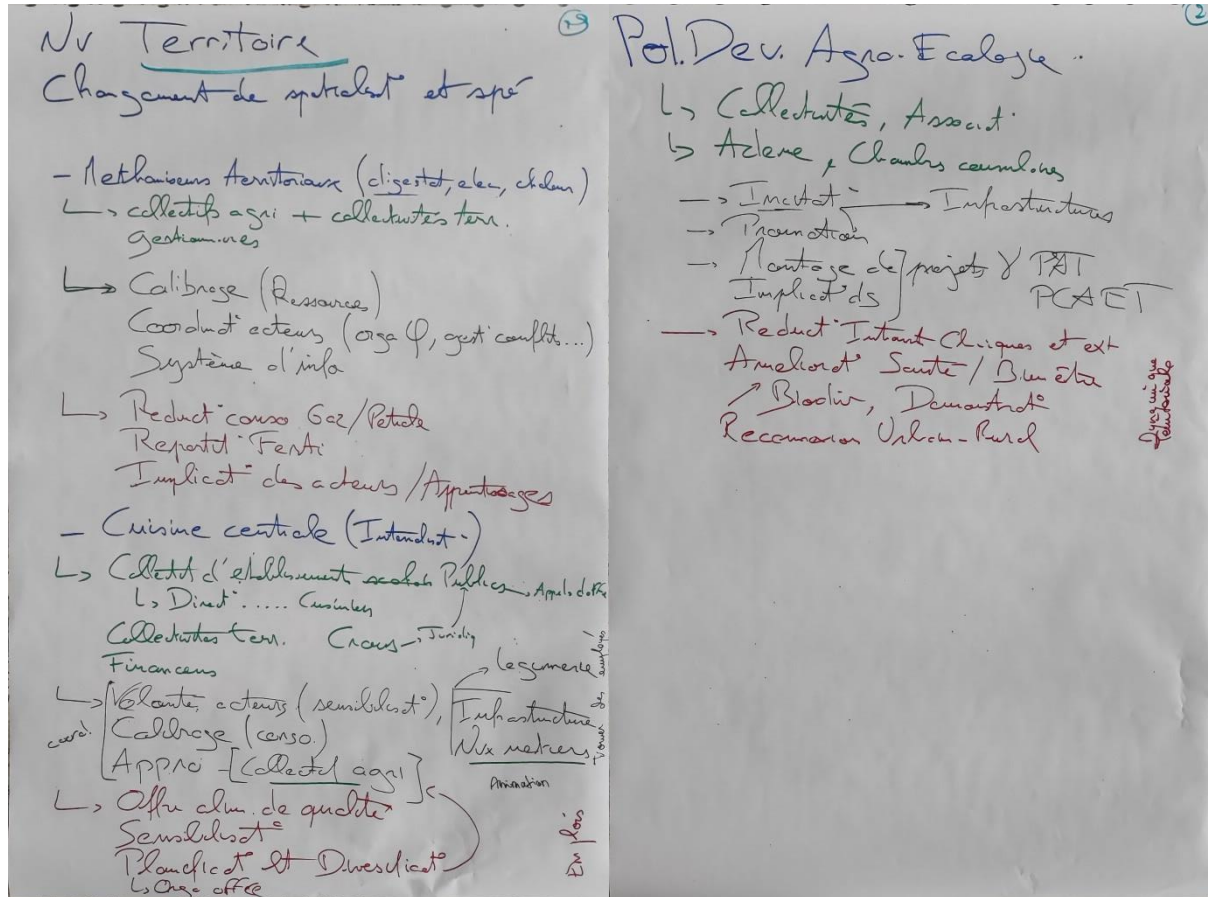 Nv Territoire
Changement de spatialisat° et spé
- Methaniseurs territoriaux (digestat, elec, chaleur)
↳ collectifs agri + collectivités terr.
gestionnaires
↳ Calibrage (Ressources)
Coordinat° acteurs (orga φ, gest° conflits...)
Système d'info
↳ Reduct° conso Gaz/Petrole
Repartit° Ferti
Implicat° des acteurs / Apprentissages
- Cuisine centrale (Intendant)
↳ Collectif d'établissement scolaire Publics, Appels d'offre
↳ Direct° ..... Cuisinier
Collectivités terr. Crous - Juridiq
Financeurs
↳ Volonté, acteurs (sensibilisat°),
Calibrage (conso)
Appro - [collectif agri]
coord.
Légumerie
Infrastructure
Nvx metiers
Animation
↳ Offre alim. de qualité
Sensibilisat°
Planificat° et Diversificat°
↳ Orga offre
Emplois
2
Pol. Dev. Agro. Ecologie
↳ Collectivités, Associat°
↳ Ademe, Chambres consulaires
→ Incitat° → Infrastructures
→ Promotion
→ Montage de projets PAT
Implicat° ds PCAET
→ Reduct° Intrant Chiques et ext
Ameliorat° Santé / Bien être
↗ Biodiv, Demonstrat°
Reconnexion Urban-Rural
Dynamique territoriale